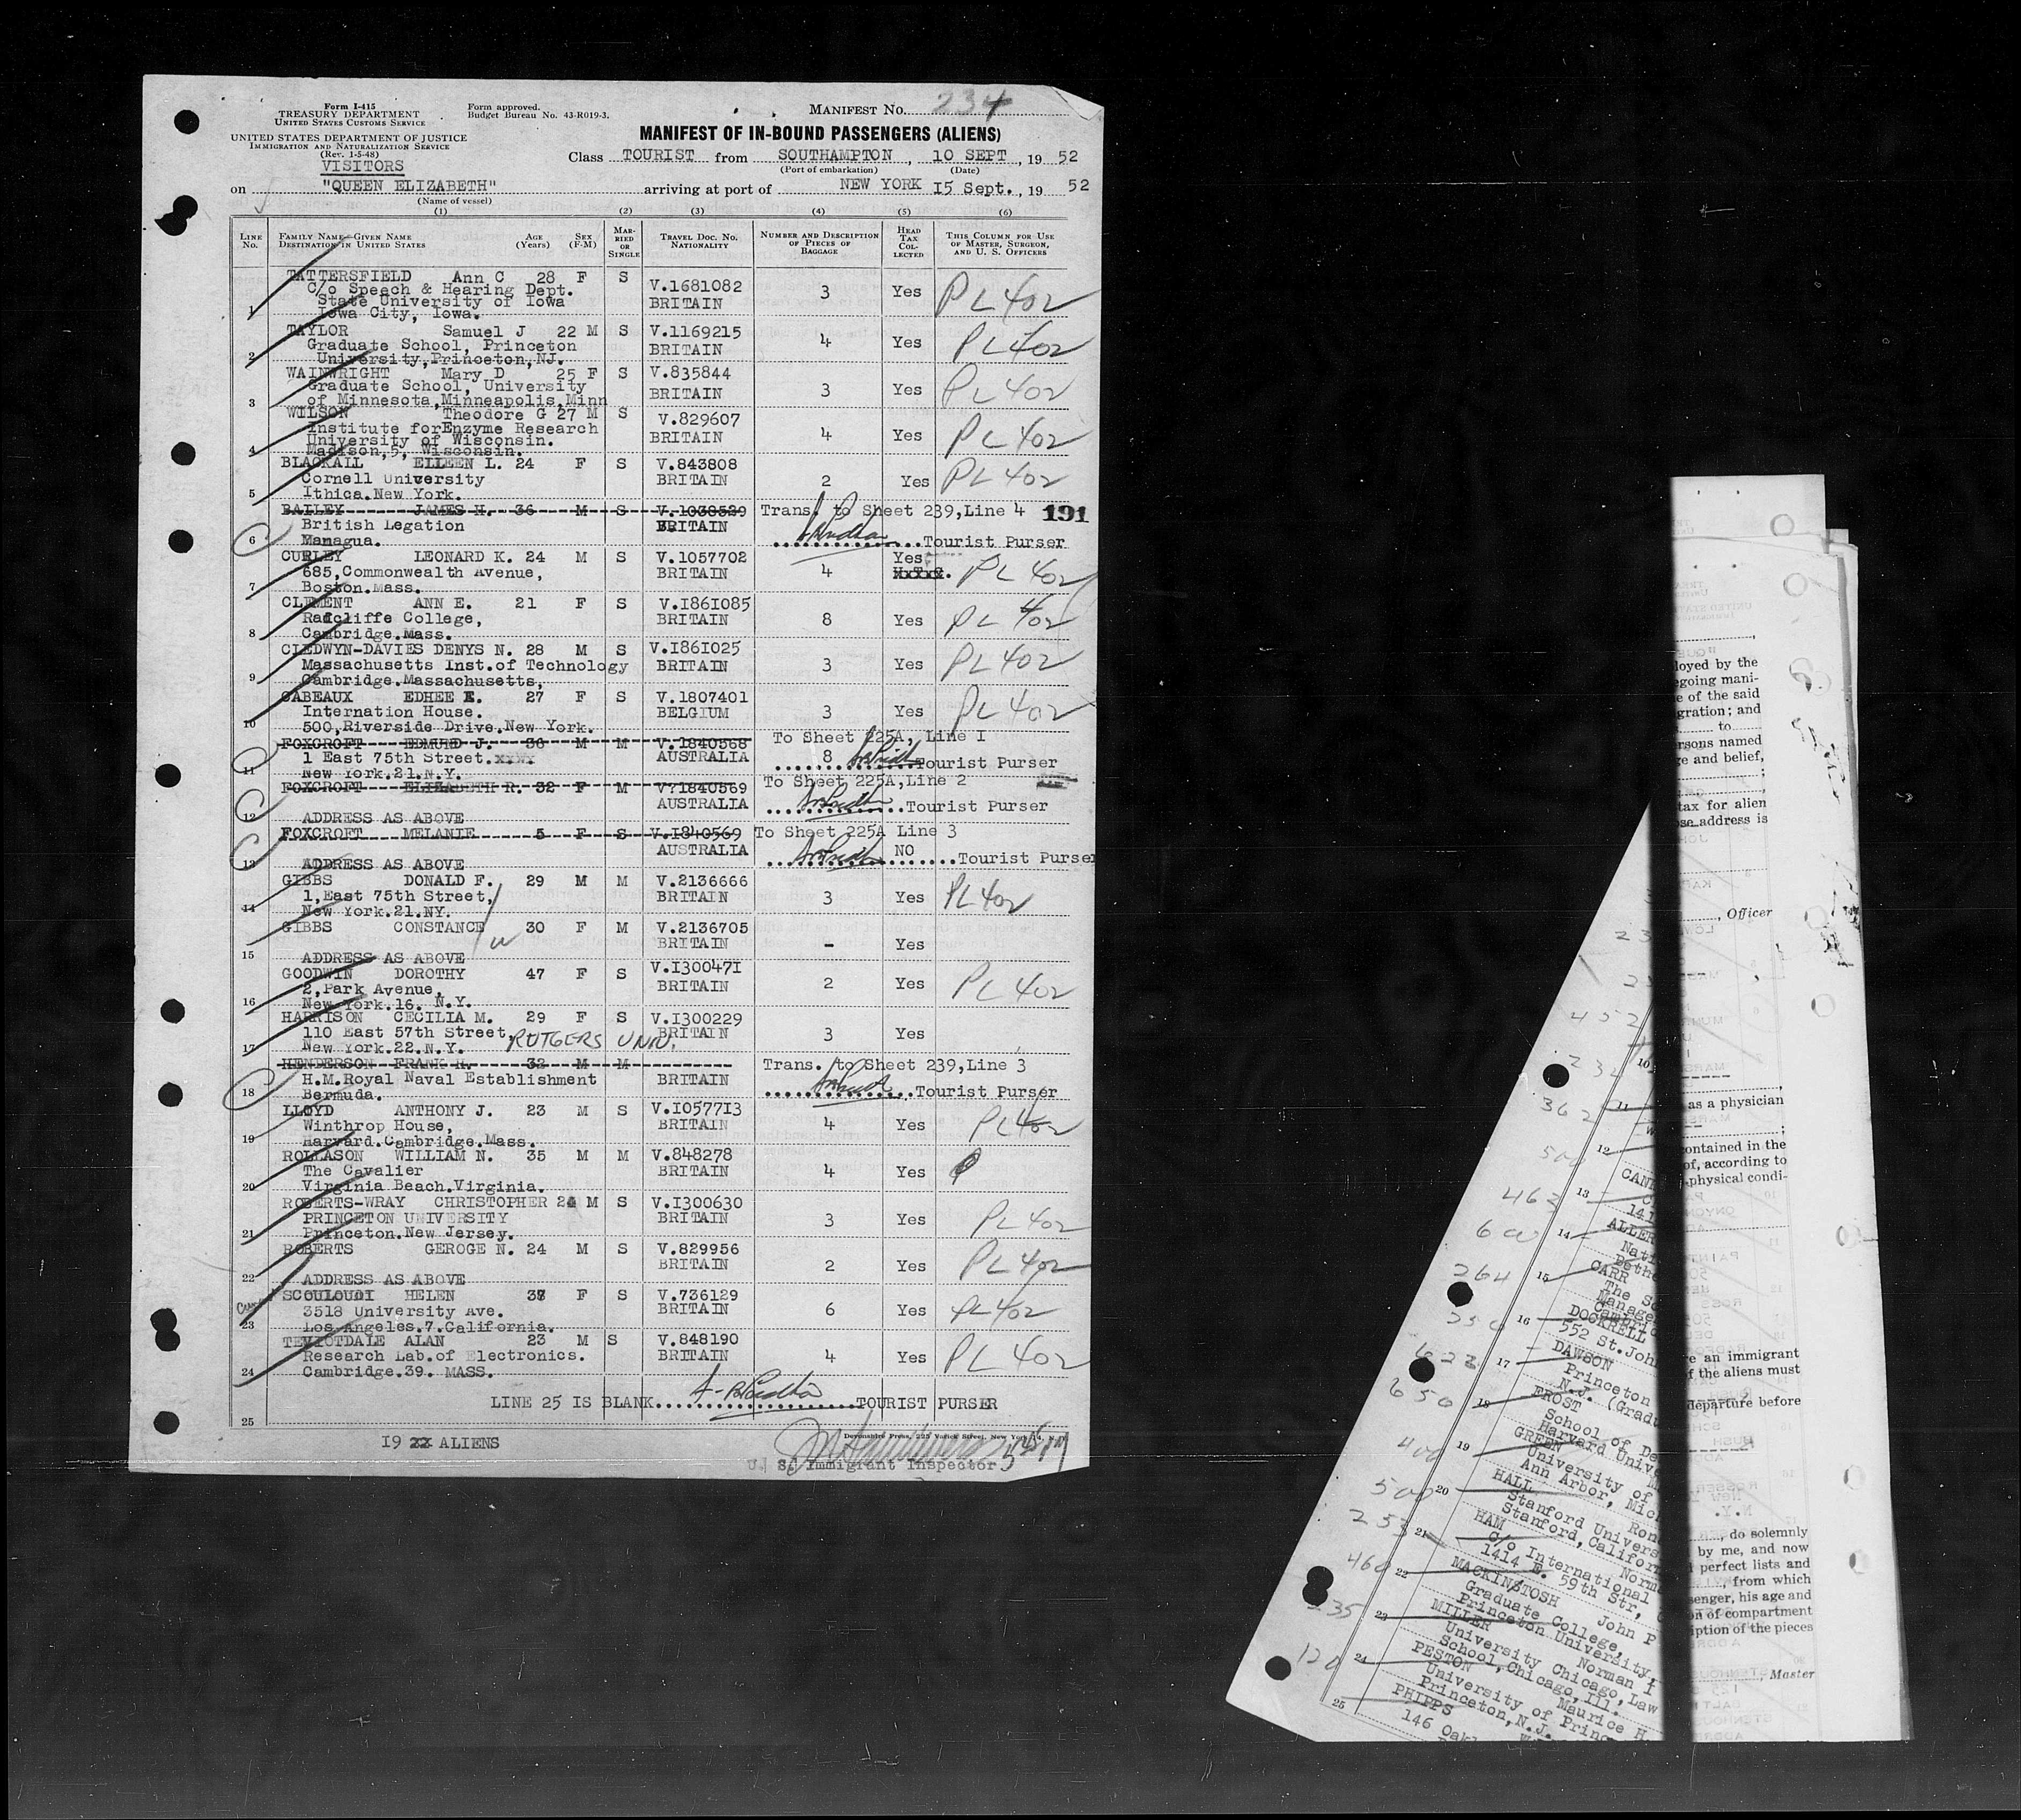 Form I-415
TREASURY DEPARTMENT
UNITED STATES CUSTOMS SERVICE
Form approved.
Budget Bureau No. 43-R019-3.
MANIFEST NO. 234
UNITED STATES DEPARTMENT OF JUSTICE
IMMIGRATION AND NATURALIZATION SERVICE
(Rev. 1-5-48)
VISITORS
MANIFEST OF IN-BOUND PASSENGERS (ALIENS)
Class TOURIST from SOUTHAMPTON, 10 SEPT, 19 52
(Port of embarkation) (Date)
on "QUEEN ELIZABETH" arriving at port of NEW YORK 15 Sept., 19 52
(Name of vessel)
(1) (2) (3) (4) (5) (6)
LINE NO. FAMILY NAME—GIVEN NAME DESTINATION IN UNITED STATES AGE (Years) SEX (F-M) MARRIED OR SINGLE TRAVEL DOC. NO. NATIONALITY NUMBER AND DESCRIPTION OF PIECES OF BAGGAGE HEAD TAX COLLECTED THIS COLUMN FOR USE OF MASTER, SURGEON, AND U. S. OFFICERS
TATTERSFIELD Ann C 28 F S V.1681082
C/o Speech & Hearing Dept. 3 Yes PL 402
State University of Iowa BRITAIN
1 Iowa City, Iowa.
TAYLOR Samuel J 22 M S V.1169215
Graduate School, Princeton BRITAIN 4 Yes PL 402
2 University,Princeton,NJ.
WAINWRIGHT Mary D 25 F S V.835844
Graduate School, University BRITAIN 3 Yes PL 402
3 of Minnesota,Minneapolis,Minn
WILSON Theodore G 27 M S V.829607
Institute forEnzyme Research BRITAIN 4 Yes PL 402
University of Wisconsin.
4 Madison,5, Wisconsin.
BLACKALL EILEEN L. 24 F S V.843808
Cornell University BRITAIN 2 Yes PL 402
5 Ithica.New York.
BAILEY JAMES H. 36 M S V.1038529 Trans. to Sheet 239,Line 4 191
British Legation BRITAIN
6 Managua. Tourist Purser
CURLEY LEONARD K. 24 M S V.1057702 Yes
685,Commonwealth Avenue, BRITAIN 4 PL 402
7 Boston.Mass.
CLEMENT ANN E. 21 F S V.I861085
Radcliffe College, BRITAIN 8 Yes PL 402
8 Cambridge.Mass.
CLEDWYN-DAVIES DENYS N. 28 M S V.I861025
Massachusetts Inst.of Technology BRITAIN 3 Yes PL 402
9 Cambridge.Massachusetts,
GABEAUX EDHEE E. 27 F S V.1807401
Internation House. BELGIUM 3 Yes PL 402
10 500,Riverside Drive.New York.
FOXCROFT EDMUND J. 36 M M V.1840568 To Sheet 225A, Line I
1 East 75th Street. AUSTRALIA 8 Tourist Purser
11 New York.21.N.Y.
FOXCROFT ELIZABETH R. 32 F M V?1840569 To Sheet 225A,Line 2
AUSTRALIA Tourist Purser
12 ADDRESS AS ABOVE
FOXCROFT MELANIE 5 F S V.I840569 To Sheet 225A Line 3
AUSTRALIA NO Tourist Purser
13 ADDRESS AS ABOVE
GIBBS DONALD F. 29 M M V.2136666
1,East 75th Street, BRITAIN 3 Yes PL 402
14 New York.21.NY.
GIBBS CONSTANCE 30 F M V.2136705
w BRITAIN - Yes
15 ADDRESS AS ABOVE
GOODWIN DOROTHY 47 F S V.I300471
2,Park Avenue, BRITAIN 2 Yes PL 402
16 New York.16. N.Y.
HARRISON CECILIA M. 29 F S V.I300229
110 East 57th Street, BRITAIN 3 Yes
17 New York.22.N.Y. RUTGERS UNIV.
HENDERSON FRANK H. 32 M M Trans. to Sheet 239,Line 3
H.M.Royal Naval Establishment BRITAIN
18 Bermuda. Tourist Purser
LLOYD ANTHONY J. 23 M S V.I057713
Winthrop House, BRITAIN 4 Yes PL 402
19 Harvard.Cambridge.Mass.
ROLLASON WILLIAM N. 35 M M V.848278
The Cavalier BRITAIN 4 Yes
20 Virginia Beach.Virginia.
ROBERTS-WRAY CHRISTOPHER M S V.I300630
PRINCETON UNIVERSITY BRITAIN 3 Yes PL 402
21 Princeton.New Jersey.
ROBERTS GEROGE N. 24 M S V.829956
BRITAIN 2 Yes PL 402
22 ADDRESS AS ABOVE
SCOULOUDI HELEN F S V.736129
3518 University Ave. BRITAIN 6 Yes PL 402
23 Los Angeles.7.California.
TEVIOTDALE ALAN 23 M S V.848190
Research Lab.of Electronics. BRITAIN 4 Yes PL 402
24 Cambridge.39. MASS.
LINE 25 IS BLANK TOURIST PURSER
25
Devonshire Press, 225 Varick Street, New York 14,
19 ALIENS
U. S. Immigrant Inspector
loyed by the
egoing mani-
e of the said
gration; and
to
ersons named
ge and belief,
tax for alien
ose address is
, Officer
as a physician
ontained in the
of, according to
physical condi-
e an immigrant
f the aliens must
departure before
, do solemnly
by me, and now
perfect lists and
, from which
senger, his age and
on of compartment
iption of the pieces
, Master
452
232
362
500
463
600
264
350
622
650
400
500
253
460
235
120
10
11
12
13
141
14 ALLER
Nati
Bethe
15 CARR
The S
Manage
Cambrid
16 DOCKRELL
552 St.John
17 DAWSON
Princeton
N.J. (Gradu
18 FROST
School of De
Harvard Unive
19 GREEN
University of
Ann Arbor, Mich
20 HALL Ron
Stanford Univers
Stanford,Californ
21 HAM Norm
C/o International
1414 E. 59th Str,
22 MACKINTOSH John P
Graduate College,
Princeton University,
23 MILLER Norman I
University Chicago, Law
School,Chicago,Ill.
24 PESTON Maurice H.
University of Princ
Princeton,N.J.
25 PHIPPS
146 Oak